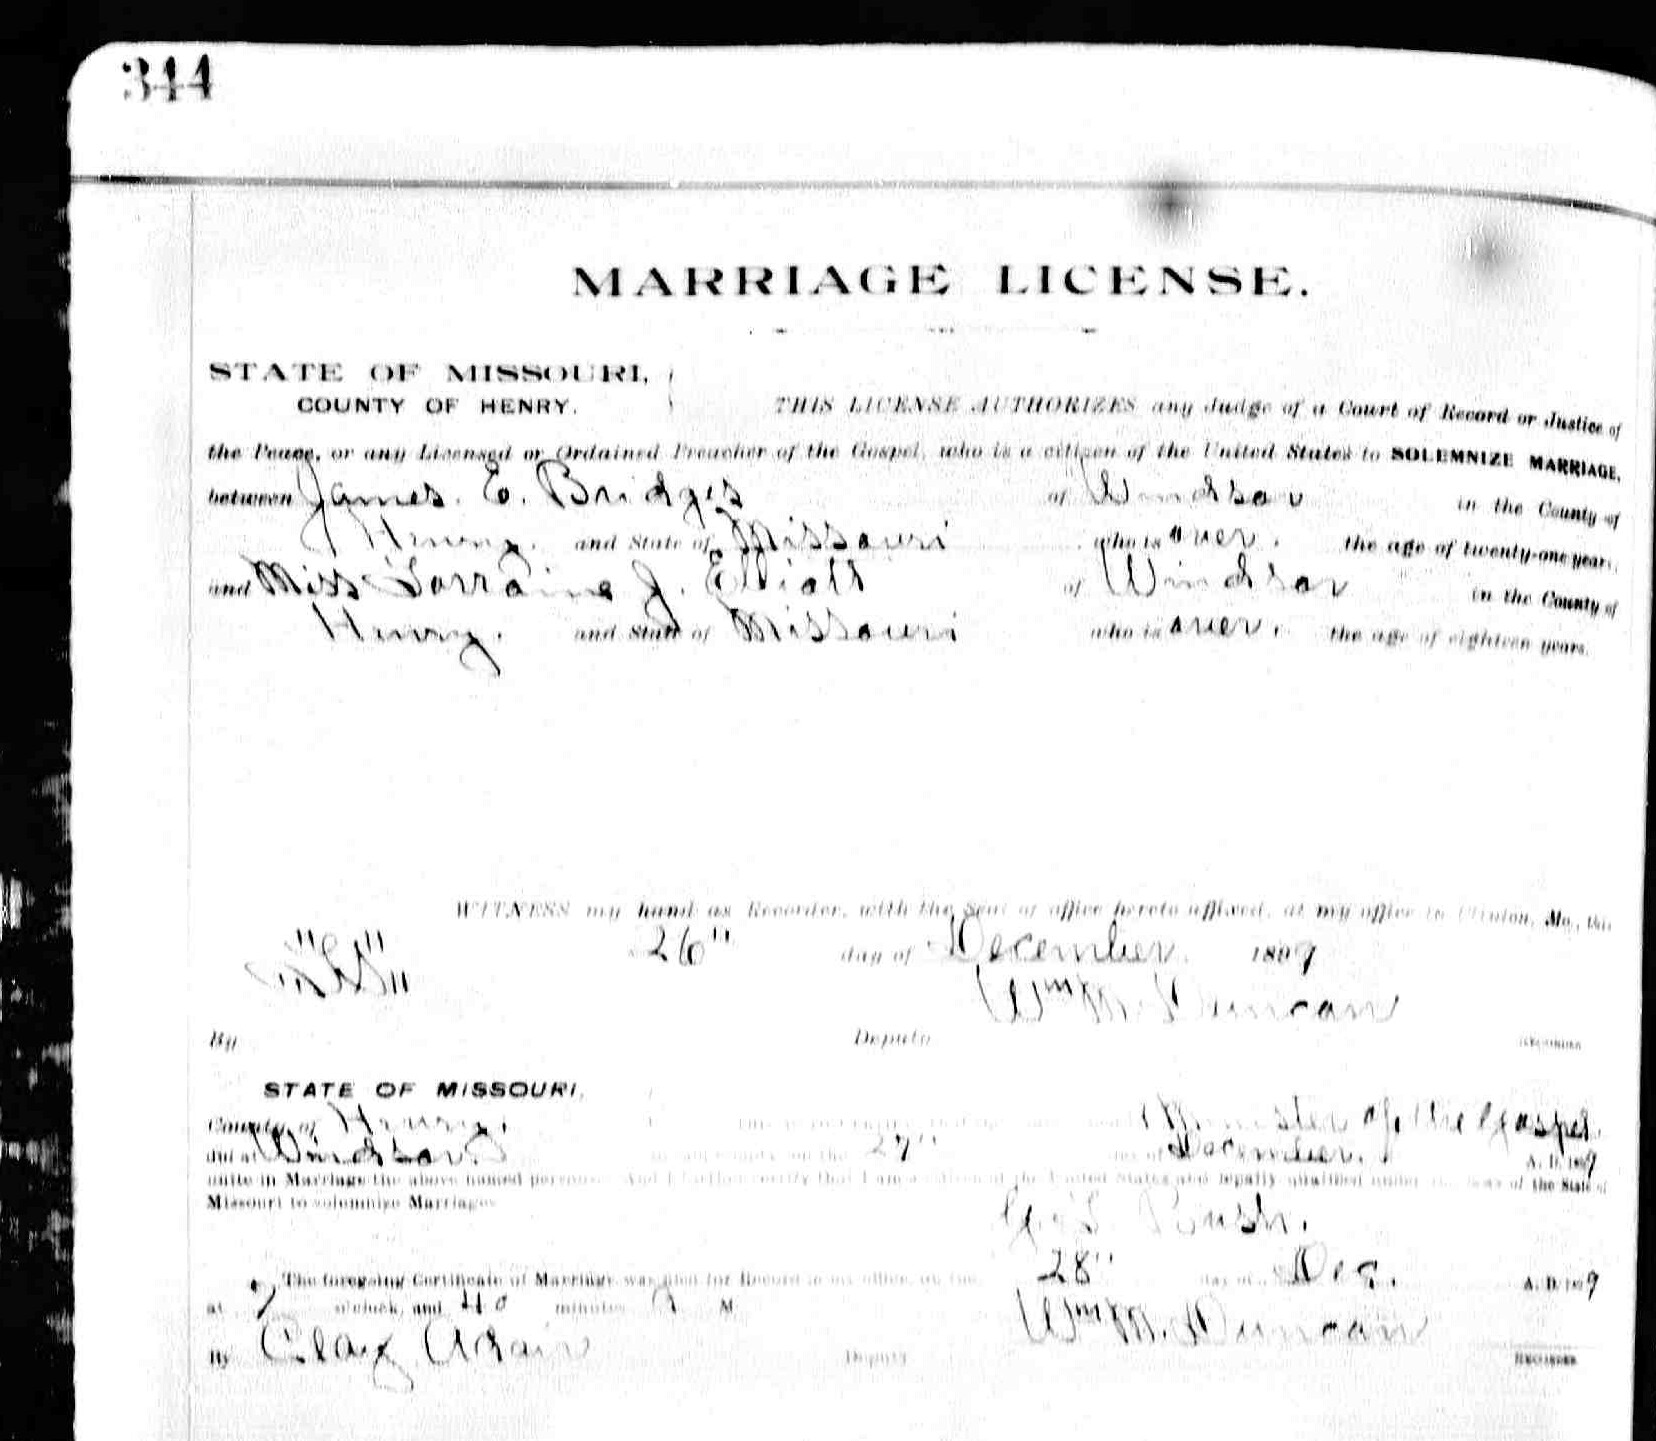 344
MARRIAGE LICENSE.
STATE OF MISSOURI,
COUNTY OF HENRY.
THIS LICENSE AUTHORIZES any Judge of a Court of Record or Justice of
the Peace, or any Licensed or Ordained Preacher of the Gospel, who is a citizen of the United States to SOLEMNIZE MARRIAGE,
between James. E. Bridges of Windsor in the County of
Henry. and State of Missouri who is over. the age of twenty-one years,
and Miss Lorraine J. Elliott of Windsor in the County of
Henry. and State of Missouri who is over. the age of eighteen years.
WITNESS my hand as Recorder, with the Seal of office hereto affixed, at my office in Clinton, Mo., this
26" day of December. 1899
"LS"
Wm M. Duncan
By Deputy Recorder
STATE OF MISSOURI,
County of Henry. Minister of the Gospel.
did at Windsor. 27" December. A. D. 1899
unite in Marriage the above named persons. And I further certify that I am a citizen of the United States and legally qualified under the laws of the State of
Missouri to solemnize Marriages
Rush.
The foregoing Certificate of Marriage was filed for Record in my office on the 28" day of Dec. A. D. 1899
at 9 o'clock, and 40 minutes M
Wm M. Duncan
By Clay Adair Deputy RECORDER